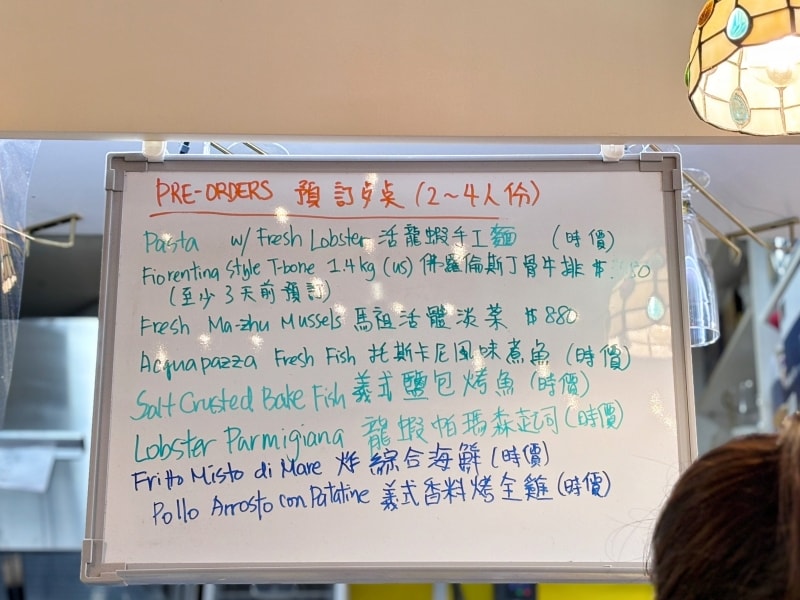 PRE-ORDERS 預訂桌 (2~4人份)
Pasta w/ Fresh Lobster 活龍蝦手工麵 (時價)
Fiorentina Style T-bone 1.4kg (US) 佛羅倫斯丁骨牛排 $
(至少3天前預訂)
Fresh Ma-zhu Mussels 馬祖活體淡菜 $880
Acquapazza Fresh Fish 托斯卡尼風味煮魚 (時價)
Salt Crusted Bake Fish 義式鹽包烤魚 (時價)
Lobster Parmigiana 龍蝦帕瑪森起司 (時價)
Fritto Misto di Mare 炸綜合海鮮 (時價)
Pollo Arrosto con Patatine 義式香料烤全雞 (時價)